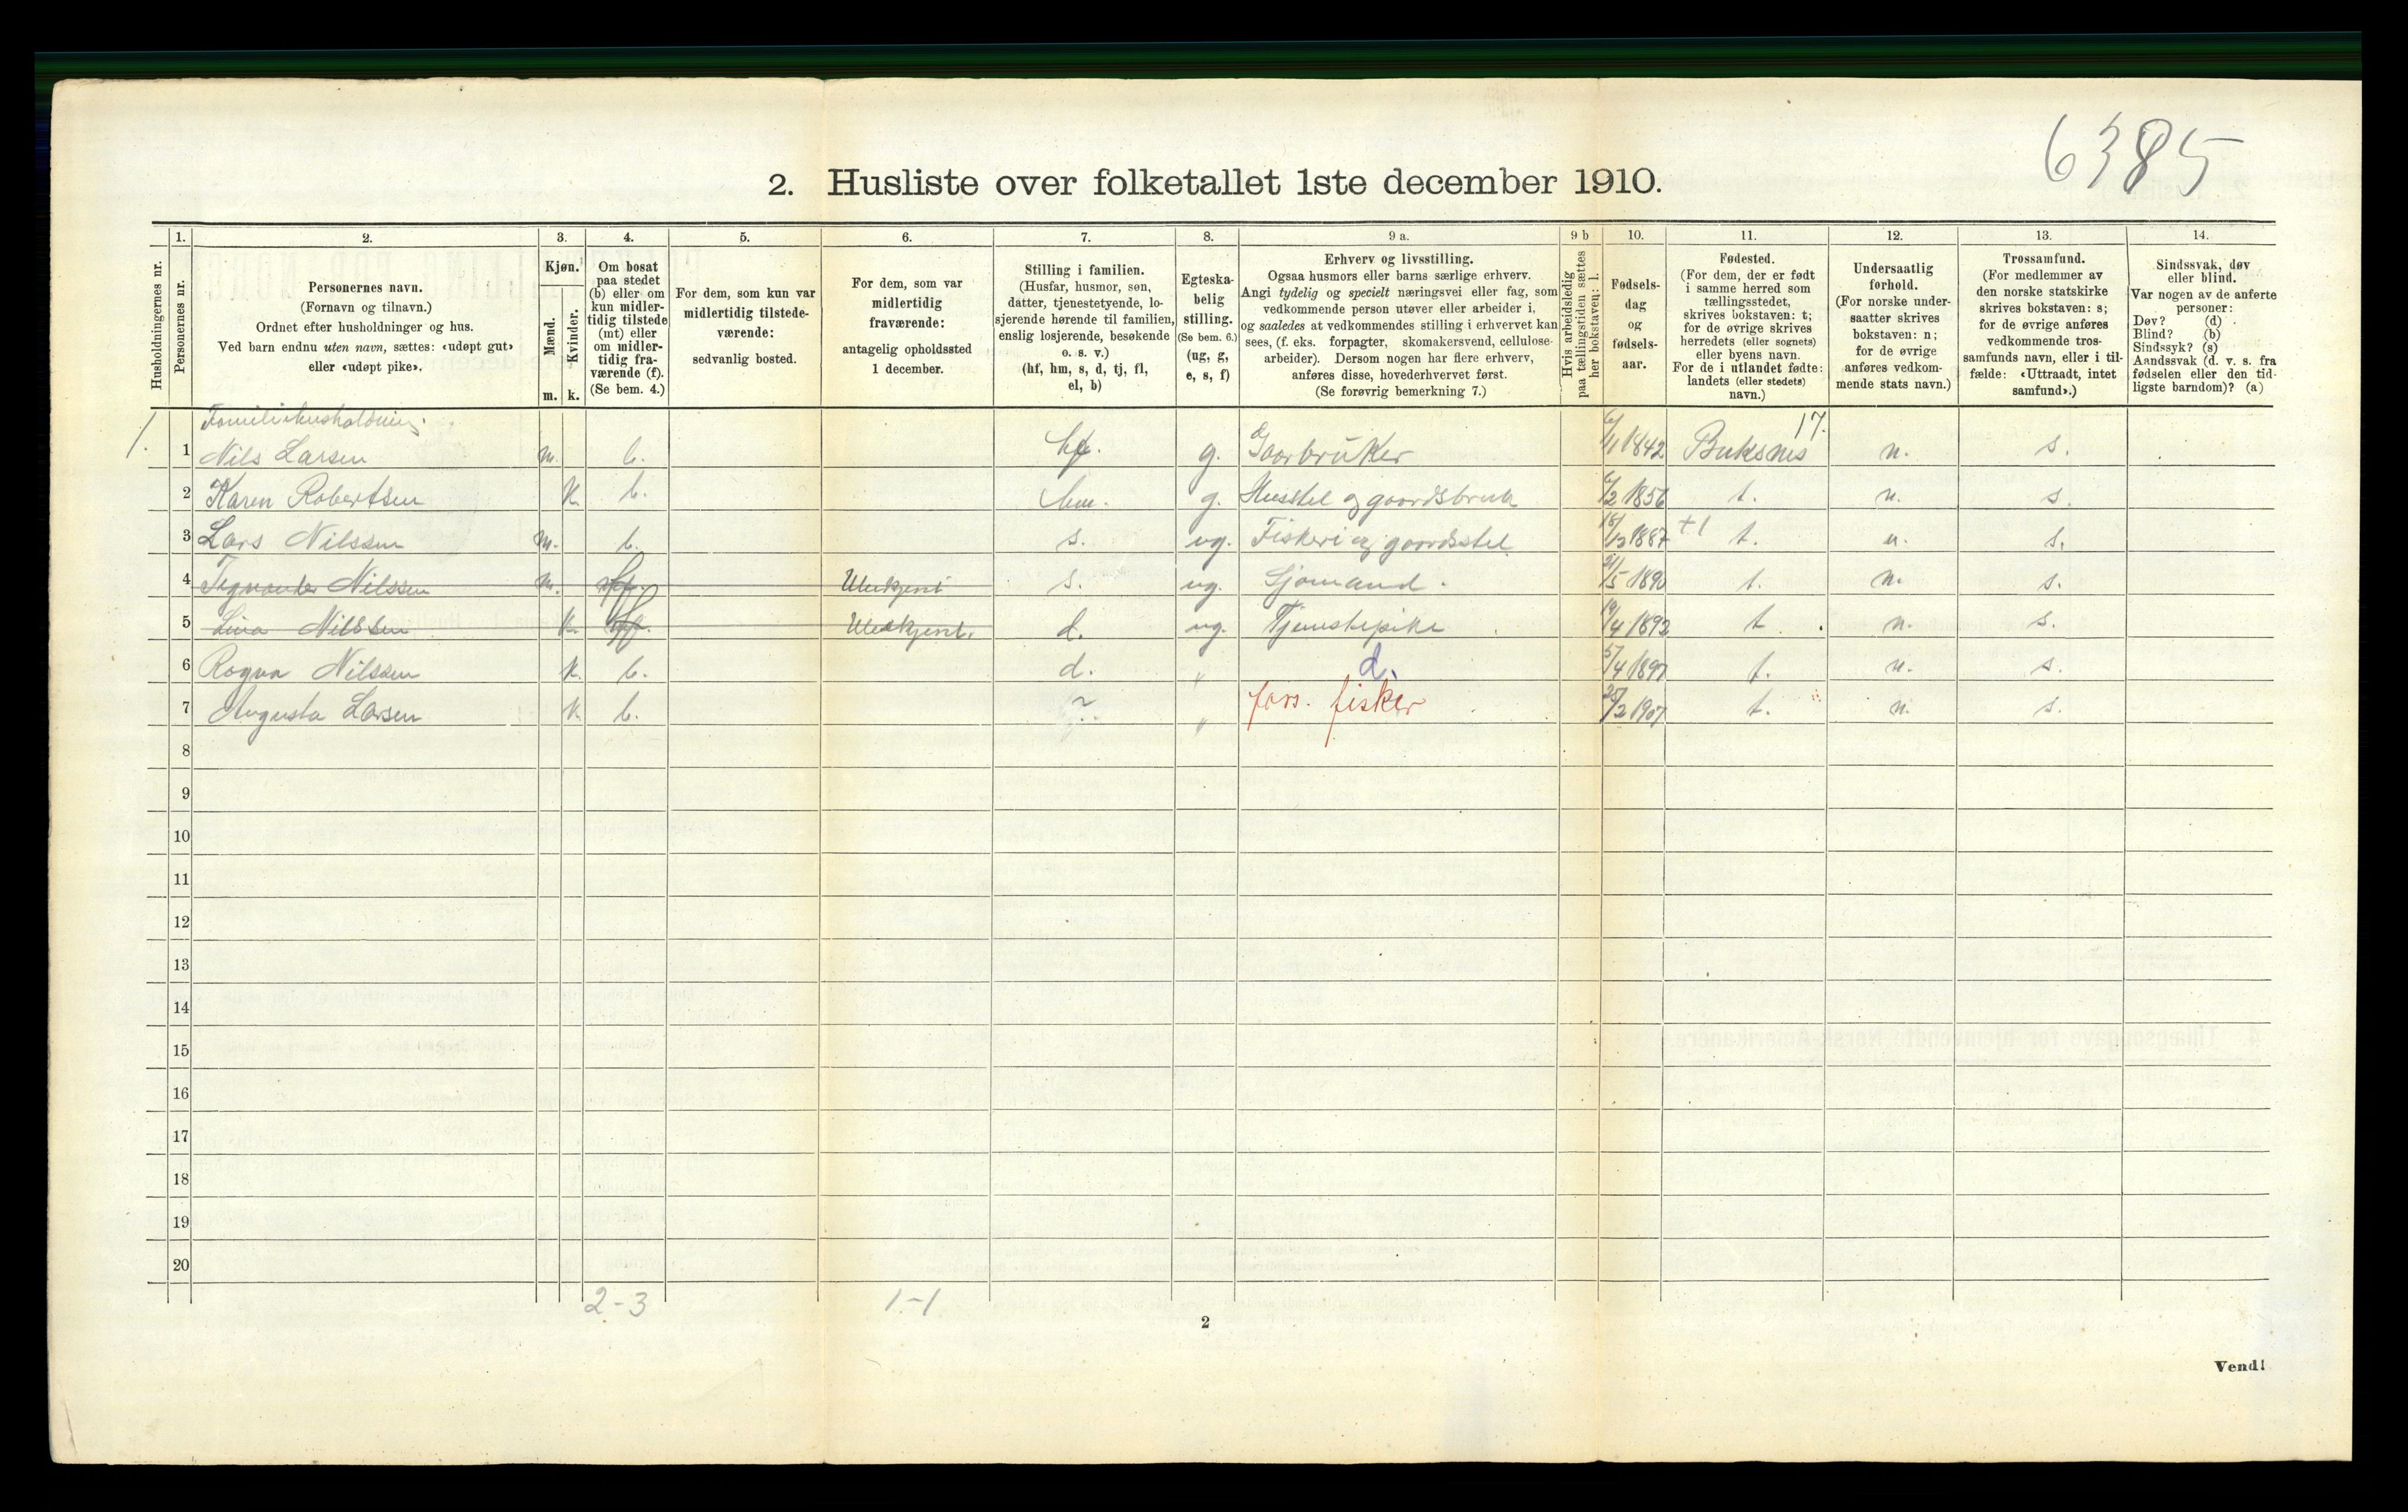 6385
2. Husliste over folketallet 1ste december 1910.
Husholdningernes nr.
1.
Personernes nr.
2.
Personernes navn.
(Fornavn og tilnavn.)
Ordnet efter husholdninger og hus.
Ved barn endnu uten navn, sættes: «udøpt gut»
eller «udøpt pike».
3.
Kjøn.
Mænd.
Kvinder.
m. k.
4.
Om bosat
paa stedet
(b) eller om
kun midler-
tidig tilstede
(mt) eller
om midler-
tidig fra-
værende (f).
(Se bem. 4.)
5.
For dem, som kun var
midlertidig tilstede-
værende:
sedvanlig bosted.
6.
For dem, som var
midlertidig
fraværende:
antagelig opholdssted
1 december.
7.
Stilling i familien.
(Husfar, husmor, søn,
datter, tjenestetyende, lo-
sjerende hørende til familien,
enslig losjerende, besøkende
o. s. v.)
(hf, hm, s, d, tj, fl,
el, b)
8.
Egteska-
belig
stilling.
(Se bem. 6.)
(ug, g,
e, s, f)
9 a.
Erhverv og livsstilling.
Ogsaa husmors eller barns særlige erhverv.
Angi tydelig og specielt næringsvei eller fag, som
vedkommende person utøver eller arbeider i,
og saaledes at vedkommendes stilling i erhvervet kan
sees, (f. eks. forpagter, skomakersvend, cellulose-
arbeider). Dersom nogen har flere erhverv,
anføres disse, hovederhvervet først.
(Se forøvrig bemerkning 7.)
9 b
Hvis arbeidsledig
paa tællingstiden sættes
her bokstaven: l.
10.
Fødsels-
dag
og
fødsels-
aar.
11.
Fødested.
(For dem, der er født
i samme herred som
tællingsstedet,
skrives bokstaven: t;
for de øvrige skrives
herredets (eller sognets)
eller byens navn.
For de i utlandet fødte:
landets (eller stedets)
navn.)
12.
Undersaatlig
forhold.
(For norske under-
saatter skrives
bokstaven: n;
for de øvrige
anføres vedkom-
mende stats navn.)
13.
Trossamfund.
(For medlemmer av
den norske statskirke
skrives bokstaven: s;
for de øvrige anføres
vedkommende tros-
samfunds navn, eller i til-
fælde: «Uttraadt, intet
samfund».)
14.
Sindssvak, døv
eller blind.
Var nogen av de anførte
personer:
Døv? (d)
Blind? (b)
Sindssyk? (s)
Aandssvak (d. v. s. fra
fødselen eller den tid-
ligste barndom)? (a)
Familiehusholdning.
1. 1 Nils Larsen m. b. hf. g. Gaarbruker 1842 Buksnes 17. n. s.
2 Karen Robertsen k. b. hm. g. Husstel og gaardsbruk 6/2 1856 t. n. s.
3 Lars Nilssen m. b. s. ug. Fiskeri og gaardsstel 1887 +1 t. n. s.
4 Nilssen m. Ubekjent s. ug. Sjømand. 1890 t. n. s.
5 Lina Nilssen k. Ubekjent. d. ug. Tjenestepike 19/4 1892 t. n. s.
6 Ragna Nilssen k. b. d. " d. 5/4 1897 t. n. s.
7 Augusta Larsen k. b. ? " fors. fisker 25/2 1907 t. n. s.
8
9
10
11
12
13
14
15
16
17
18
19
20
2-3 1-1
2
Vend!